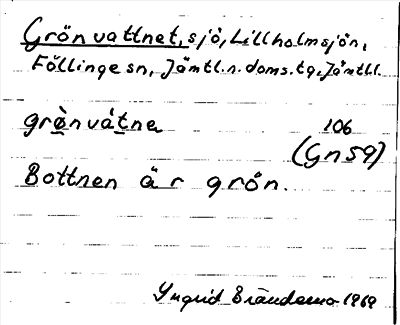 Grönvattnet, sjö, Lillholmsjön,
Föllinge sn, Jämtl. n. doms. tg, Jämtl.l.
grø̀nvátne
106
(Gn 59)
Bottnen är grön.
Ingrid Brändemo 1969